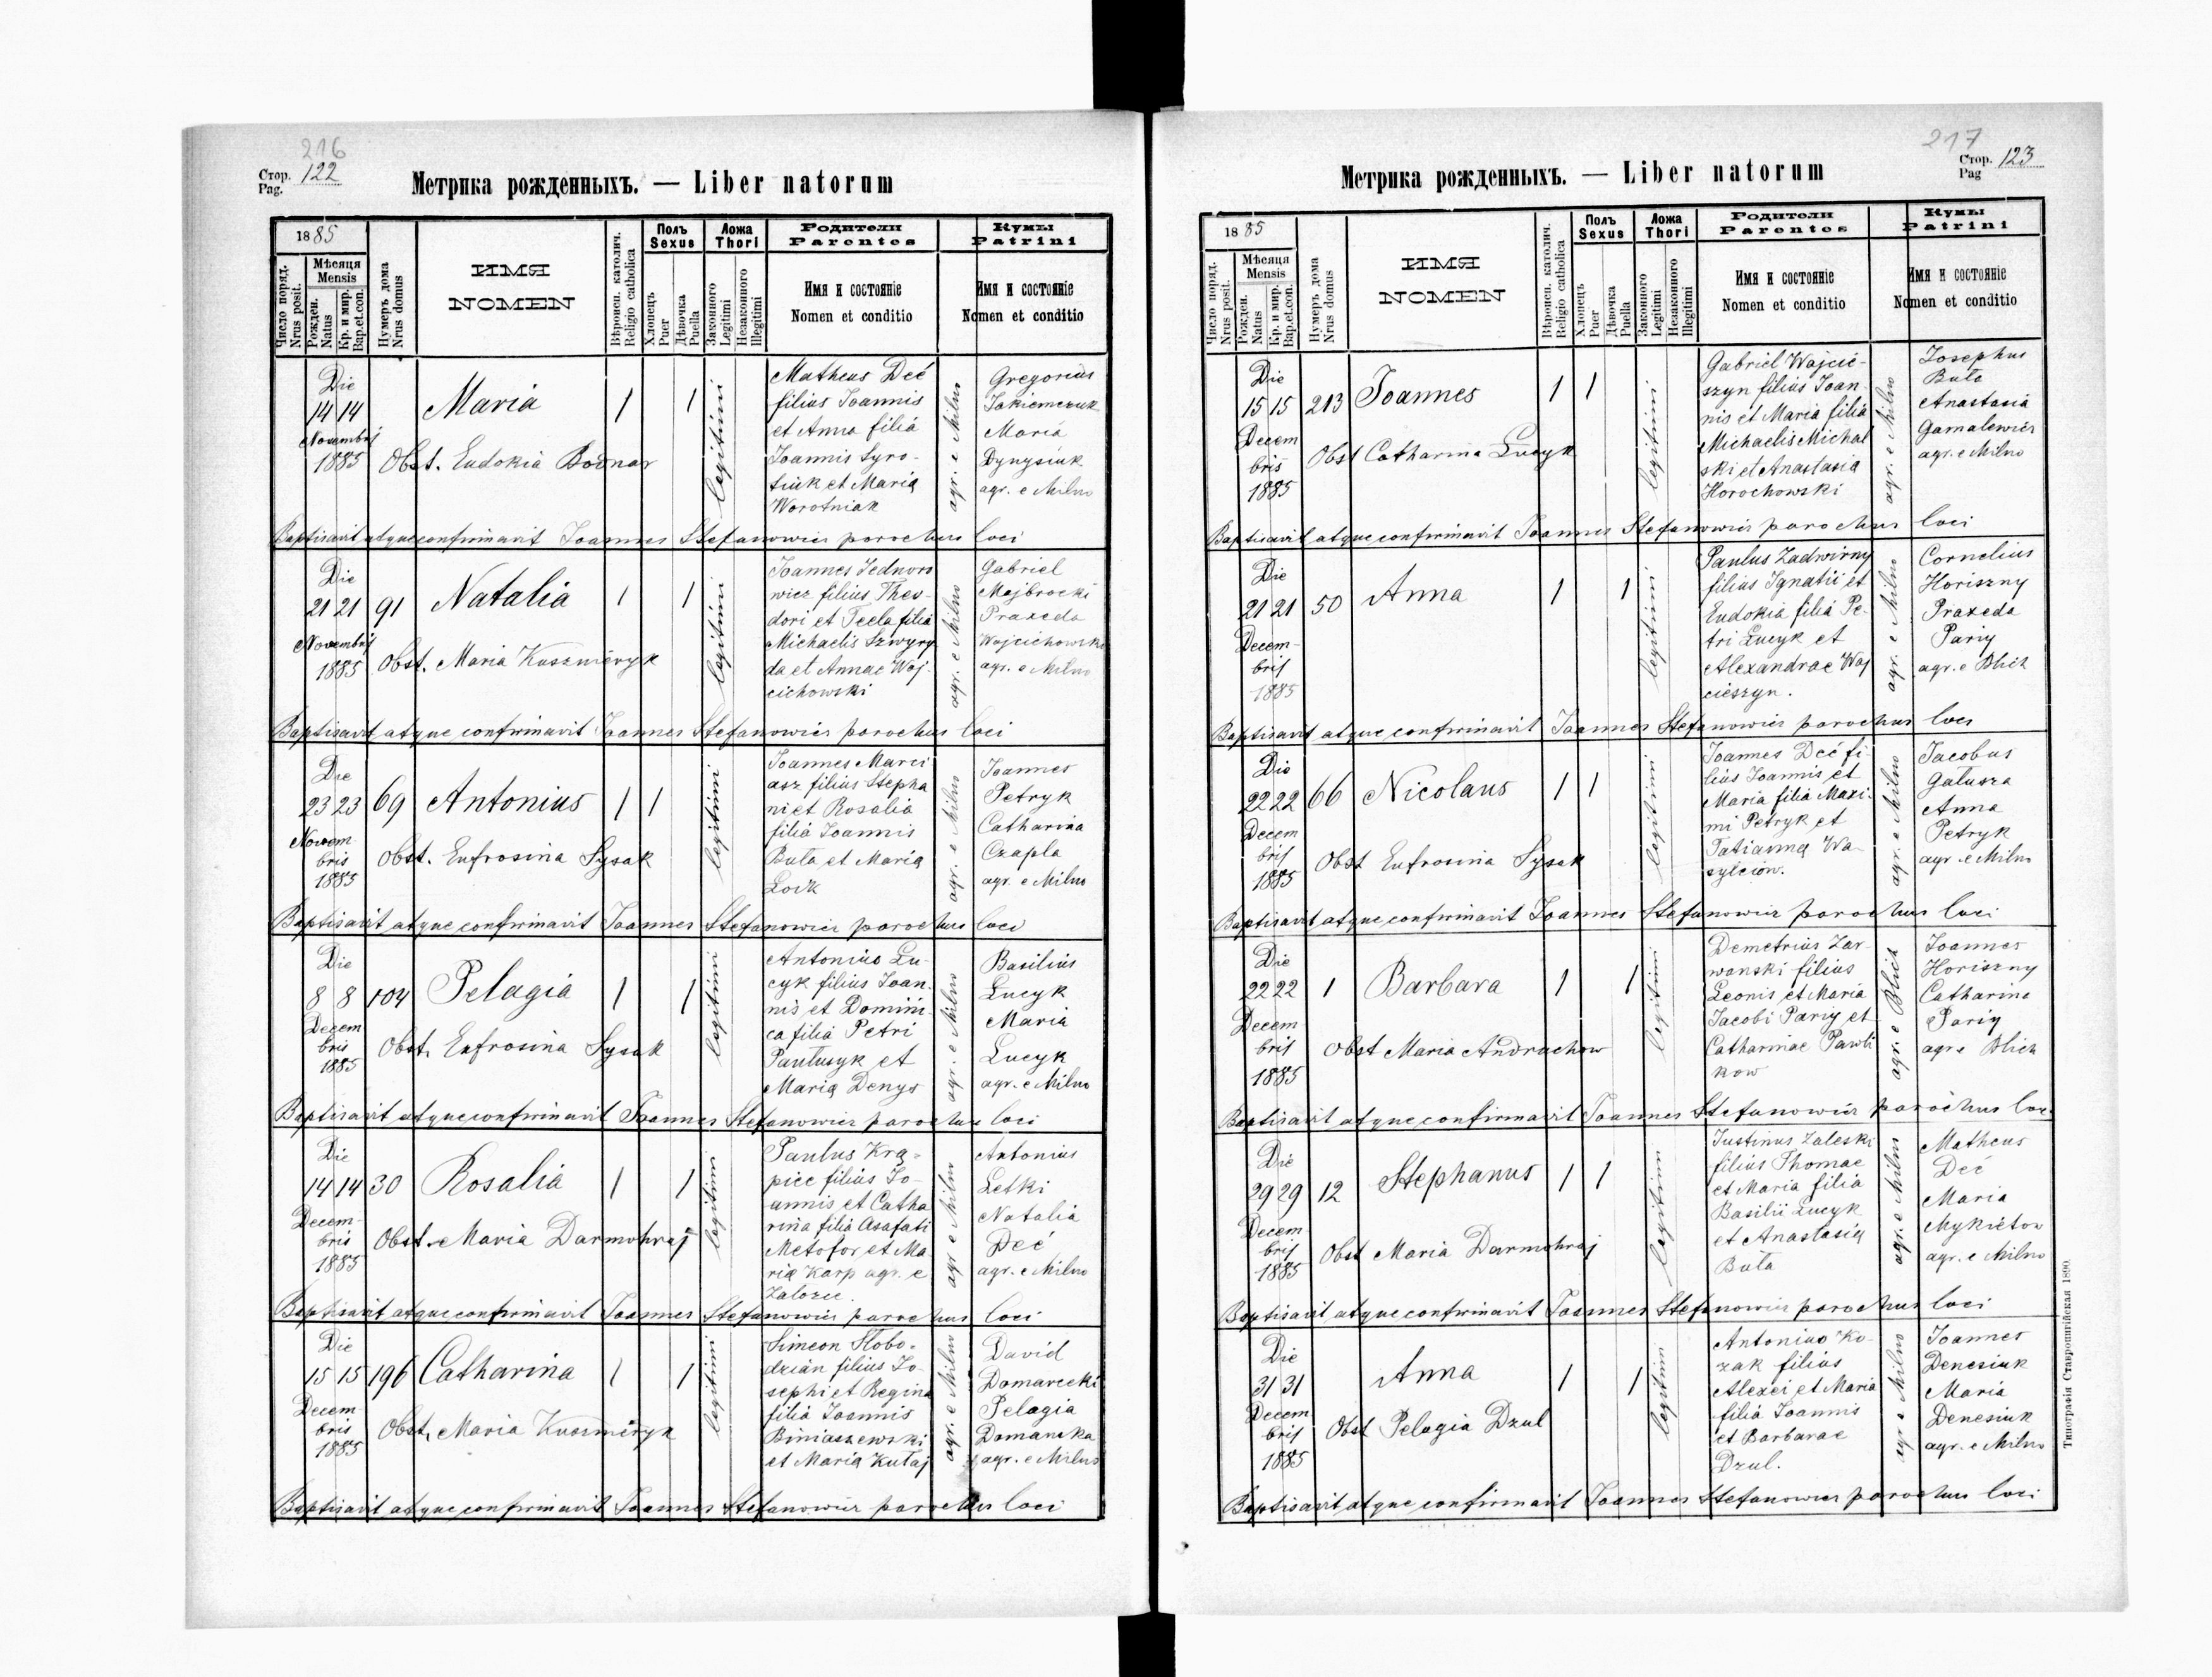 216
Стор. 122
Pag.
Метрика рожденныхъ. — Liber natorum
1885
Мѣсяця
Mensis
Число поряд.
Nrus posit.
Рожден.
Natus
Кр. и мир.
Bap.et.con.
Нумеръ дома
Nrus domus
ИМЯ
NOMEN
Вѣроисп. католич.
Religio catholica
Полъ
Sexus
Хлопецъ
Puer
Дѣвочка
Puella
Ложа
Thori
Законного
Legitimi
Незаконного
Illegitimi
Родители
Parentes
Имя и состояніе
Nomen et conditio
Кумы
Patrini
Имя и состояніе
Nomen et conditio
Die
14 14
Novembris
1885
Maria
Obst. Eudokia Bodnar
1 1
legitimi
Matheus Deć
filius Joannis
et Anna filia
Joannis Syro-
tiuk et Maria
Worotniak
agr. e Milno
Gregorius
Jakiemczuk
Maria
Dynysiuk
agr. e Milno
Baptisavit atque confirmavit Joannes Stefanowicz parochus loci
Die
21 21 91
Novembris
1885
Natalia
Obst. Maria Kuszmiryk
1 1
legitimi
Joannes Jednoro
wicz filius Theo-
dori et Tecla filia
Michaelis Szwyry
da et Annae Woj-
cichowski
agr. e Milno
Gabriel
Majbrocki
Praxeda
Wojcichowska
agr. e Milno
Baptisavit atque confirmavit Joannes Stefanowicz parochus loci
Die
23 23 69
Novem
bris
1885
Antonius
Obst. Eufrosina Sysak
1 1
legitimi
Joannes Marci
asz filius Stepha
ni et Rosalia
filia Joannis
Buta et Maria
Loik
agr. e Milno
Joannes
Petryk
Catharina
Czapla
agr. e Milno
Baptisavit atque confirmavit Joannes Stefanowicz parochus loci
Die
8 8 104
Decem
bris
1885
Pelagia
Obst. Eufrosina Sysak
1 1
legitimi
Antonius Lu-
cyk filius Joan-
nis et Domini-
ca filia Petri
Pautusyk et
Maria Denys
agr. e Milno
Basilius
Lucyk
Maria
Lucyk
agr. e Milno
Baptisavit atque confirmavit Joannes Stefanowicz parochus loci
Die
14 14 30
Decem-
bris
1885
Rosalia
Obst. Maria Darmohraj
1 1
legitimi
Paulus Kra-
piec filius Jo-
annis et Catha
rina filia Asafati
Metofor et Ma
ria Karp agr. e
Zalozce.
agr e Milno
Antonius
Letki
Natalia
Deć
agr. e Milno
Baptisavit atque confirmavit Joannes Stefanowicz parochus loci
Die
15 15 196
Decem
bris
1885
Catharina
Obst. Maria Kuszmiryk
1 1
legitimi
Simeon Słobo-
dzian filius Jo-
sephi et Regina
filia Joannis
Biniaszewski
et Maria Kutaj
agr. e Milno
David
Domarecki
Pelagia
Domanska
agr. e Milno
Baptisavit atque confirmavit Joannes Stefanowicz parochus loci
217
Стор. 123
Pag
Метрика рожденныхъ. — Liber natorum
1885
Мѣсяця
Mensis
Число поряд.
Nrus posit.
Рожден.
Natus
Кр. и мир.
Bap.et.con.
Нумеръ дома
Nrus domus
ИМЯ
NOMEN
Вѣроисп. католич.
Religio catholica
Полъ
Sexus
Хлопецъ
Puer
Дѣвочка
Puella
Ложа
Thori
Законного
Legitimi
Незаконного
Illegitimi
Родители
Parentes
Имя и состояніе
Nomen et conditio
Кумы
Patrini
Имя и состояніе
Nomen et conditio
Die
15 15 213
Decem
bris
1885
Joannes
Obst Catharina Lucyk
1 1
legitimi
Gabriel Wojcie-
szyn filius Joan-
nis et Maria filia
Michaelis Michal
ski et Anastasia
Horochowski
agr. e Milno
Josephus
Buta
Anastasia
Gamalewicz
agr. e Milno
Baptisavit atque confirmavit Joannes Stefanowicz parochus loci
Die
21 21 50
Decem-
bris
1885
Anna
1 1
legitimi
Paulus Zadwirny
filius Ignatii et
Eudokia filia Pe-
tri Lucyk et
Alexandrae Woj
cieszyn.
agr. e Milno
Cornelius
Horiszny
Praxeda
Pariy
agr. e Blich
Baptisavit atque confirmavit Joannes Stefanowicz parochus loci
Die
22 22 66
Decem
bris
1885
Nicolaus
Obst Eufrosina Sysak
1 1
legitimi
Joannes Deć fi-
lius Joannis et
Maria filia Maxi-
mi Petryk et
Tatianna Wa-
sylciow.
agr. e Milno
Jacobus
Gałusza
Anna
Petryk
agr. e Milno
Baptisavit atque confirmavit Joannes Stefanowicz parochus loci
Die
22 22 1
Decem
bris
1885
Barbara
Obst Maria Andruchow
1 1
legitimi
Demetrius Zar-
wanski filius
Leonis et Maria
Jacobi Pariy et
Catharinae Pawli
kow
agr. e Blich
Joannes
Horiszny
Catharina
Pariy
agr e Blich
Baptisavit atque confirmavit Joannes Stefanowicz parochus loci
Die
29 29 12
Decem
bris
1885
Stephanus
Obst Maria Darmohraj
1 1
legitimi
Justinus Zaleski
filius Thomae
et Maria filia
Basilii Lucyk
et Anastasia
Buta
agr. e Milno
Matheus
Deć
Maria
Mykietow
agr. e Milno
Baptisavit atque confirmavit Joannes Stefanowicz parochus loci
Die
31 31
Decem
bris
1885
Anna
Obst Pelagia Dzul
1 1
legitimi
Antonius Ko-
zak filius
Alexei et Maria
filia Joannis
et Barbarae
Dzul.
agr e Milno
Joannes
Denesiuk
Maria
Denesiuk
agr. e Milno
Baptisavit atque confirmavit Joannes Stefanowicz parochus loci
Типографія Ставропигійская 1890.